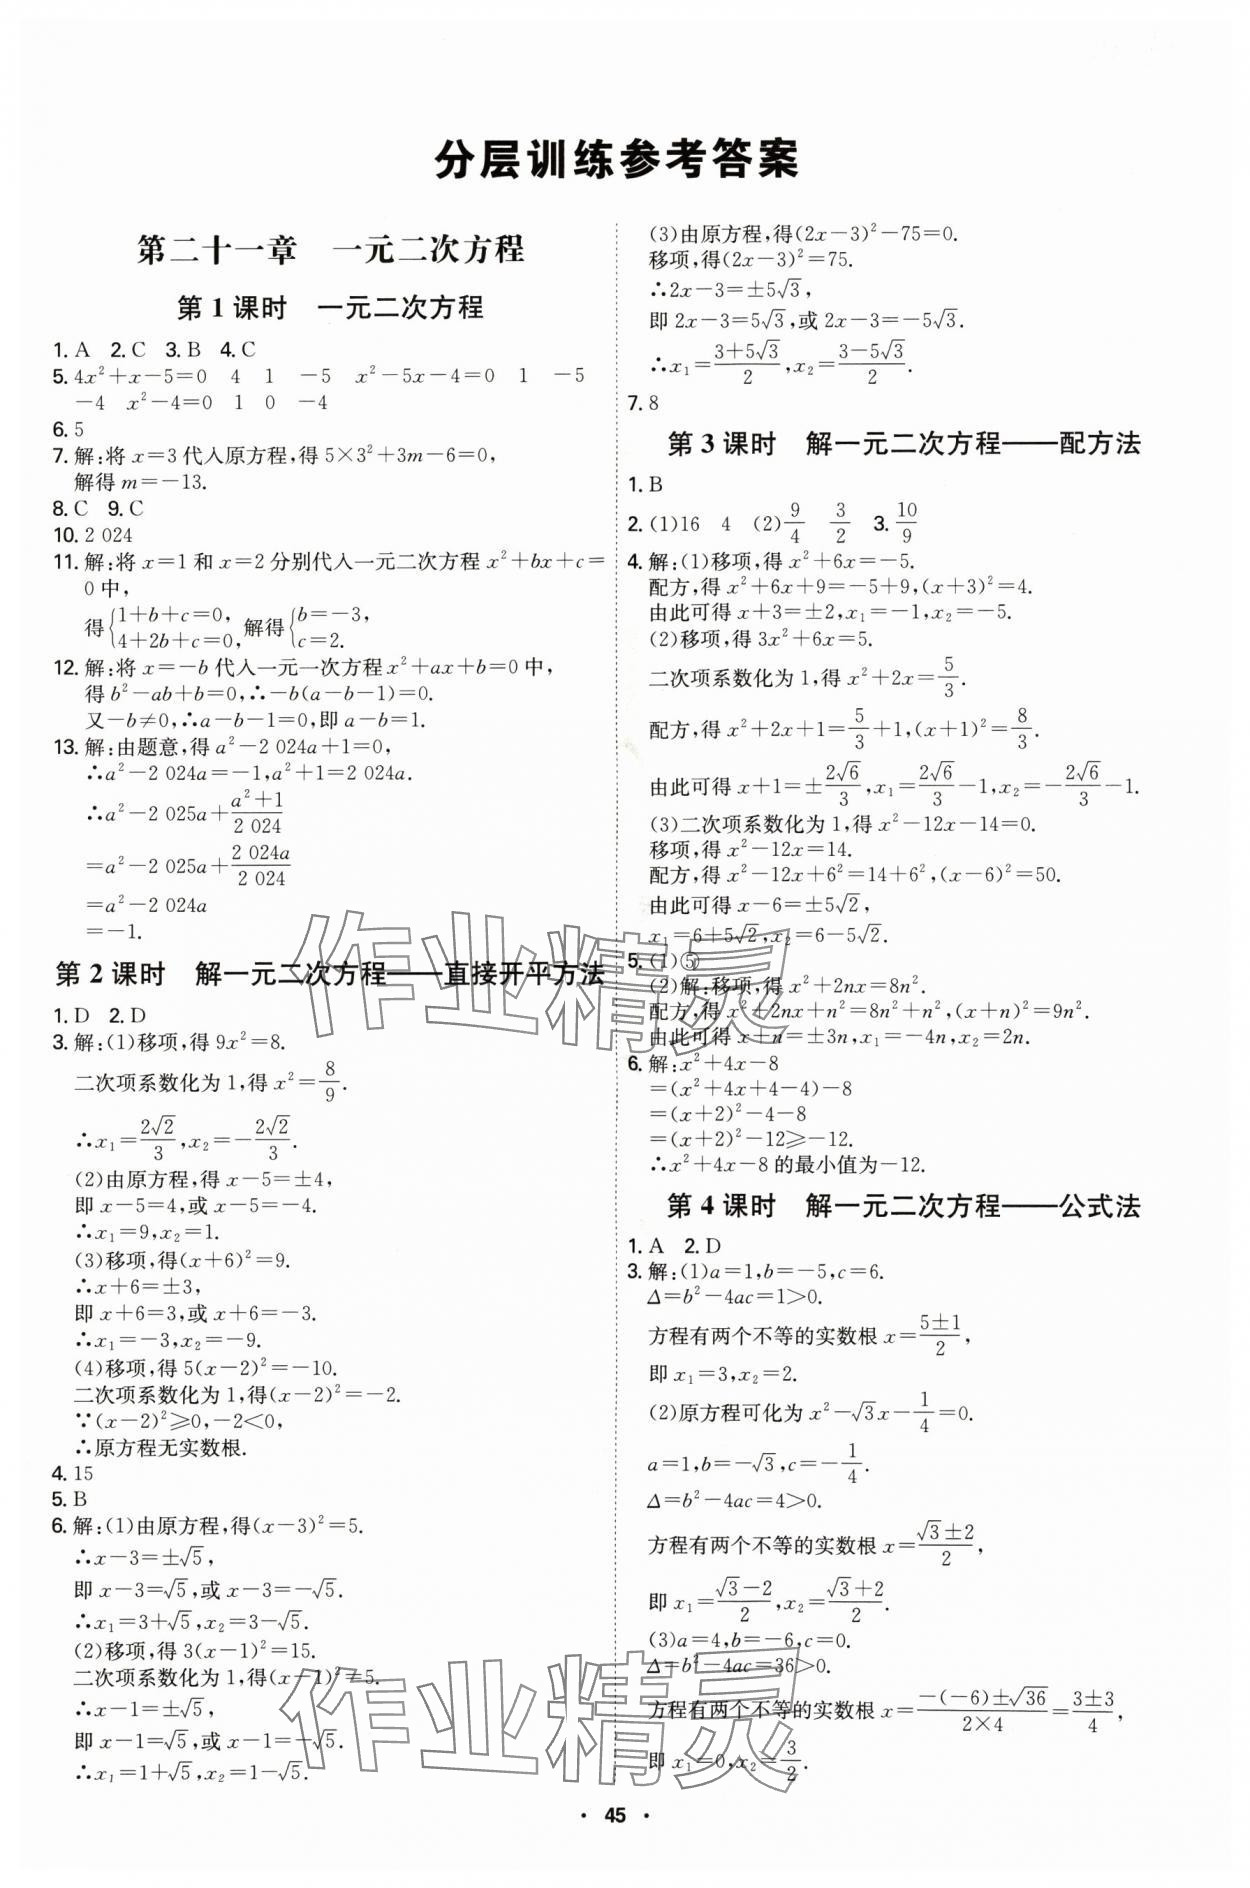 分层训练参考答案
第二十一章　一元二次方程
第1课时　一元二次方程
1. A　2. C　3. B　4. C
5. 4x²+x-5=0　4　1　-5　x²-5x-4=0　1　-5
-4　x²-4=0　1　0　-4
6. 5
7. 解:将 x=3 代入原方程,得 5×3²+3m-6=0,
解得 m=-13.
8. C　9. C
10. 2 024
11. 解:将 x=1 和 x=2 分别代入一元二次方程 x²+bx+c=
0 中,
得{1+b+c=0, 4+2b+c=0, 解得{b=-3, c=2.
12. 解:将 x=-b 代入一元一次方程 x²+ax+b=0 中,
得 b²-ab+b=0,∴-b(a-b-1)=0.
又-b≠0,∴a-b-1=0,即 a-b=1.
13. 解:由题意,得 a²-2 024a+1=0,
∴a²-2 024a=-1,a²+1=2 024a.
∴a²-2 025a+(a²+1)/(2 024)
=a²-2 025a+(2 024a)/(2 024)
=a²-2 024a
=-1.
第2课时　解一元二次方程——直接开平方法
1. D　2. D
3. 解:(1)移项,得 9x²=8.
二次项系数化为 1,得 x²=8/9.
∴x₁=2√2/3,x₂=-2√2/3.
(2)由原方程,得 x-5=±4,
即 x-5=4,或 x-5=-4.
∴x₁=9,x₂=1.
(3)移项,得(x+6)²=9.
∴x+6=±3,
即 x+6=3,或 x+6=-3.
∴x₁=-3,x₂=-9.
(4)移项,得 5(x-2)²=-10.
二次项系数化为 1,得(x-2)²=-2.
∵(x-2)²≥0,-2<0,
∴原方程无实数根.
4. 15
5. B
6. 解:(1)由原方程,得(x-3)²=5.
∴x-3=±√5,
即 x-3=√5,或 x-3=-√5.
∴x₁=3+√5,x₂=3-√5.
(2)移项,得 3(x-1)²=15.
二次项系数化为 1,得(x-1)²=5.
∴x-1=±√5,
即 x-1=√5,或 x-1=-√5.
∴x₁=1+√5,x₂=1-√5.
(3)由原方程,得(2x-3)²-75=0.
移项,得(2x-3)²=75.
∴2x-3=±5√3,
即 2x-3=5√3,或 2x-3=-5√3.
∴x₁=(3+5√3)/2,x₂=(3-5√3)/2.
7. 8
第3课时　解一元二次方程——配方法
1. B
2. (1)16　4　(2)9/4　3/2　3. 10/9
4. 解:(1)移项,得 x²+6x=-5.
配方,得 x²+6x+9=-5+9,(x+3)²=4.
由此可得 x+3=±2,x₁=-1,x₂=-5.
(2)移项,得 3x²+6x=5.
二次项系数化为 1,得 x²+2x=5/3.
配方,得 x²+2x+1=5/3+1,(x+1)²=8/3.
由此可得 x+1=±2√6/3,x₁=2√6/3-1,x₂=-2√6/3-1.
(3)二次项系数化为 1,得 x²-12x-14=0.
移项,得 x²-12x=14.
配方,得 x²-12x+6²=14+6²,(x-6)²=50.
由此可得 x-6=±5√2,
x₁=6+5√2,x₂=6-5√2.
5. (1)⑤
(2)解:移项,得 x²+2nx=8n².
配方,得 x²+2nx+n²=8n²+n²,(x+n)²=9n².
由此可得 x+n=±3n,x₁=-4n,x₂=2n.
6. 解:x²+4x-8
=(x²+4x+4-4)-8
=(x+2)²-4-8
=(x+2)²-12≥-12.
∴x²+4x-8 的最小值为-12.
第4课时　解一元二次方程——公式法
1. A　2. D
3. 解:(1)a=1,b=-5,c=6.
Δ=b²-4ac=1>0.
方程有两个不等的实数根 x=(5±1)/2,
即 x₁=3,x₂=2.
(2)原方程可化为 x²-√3x-1/4=0.
a=1,b=-√3,c=-1/4.
Δ=b²-4ac=4>0.
方程有两个不等的实数根 x=(√3±2)/2,
即 x₁=(√3-2)/2,x₂=(√3+2)/2.
(3)a=4,b=-6,c=0.
Δ=b²-4ac=36>0.
方程有两个不等的实数根 x=(-(-6)±√36)/(2×4)=(3±3)/4,
即 x₁=0,x₂=3/2.
· 45 ·
作业精灵
作业精灵